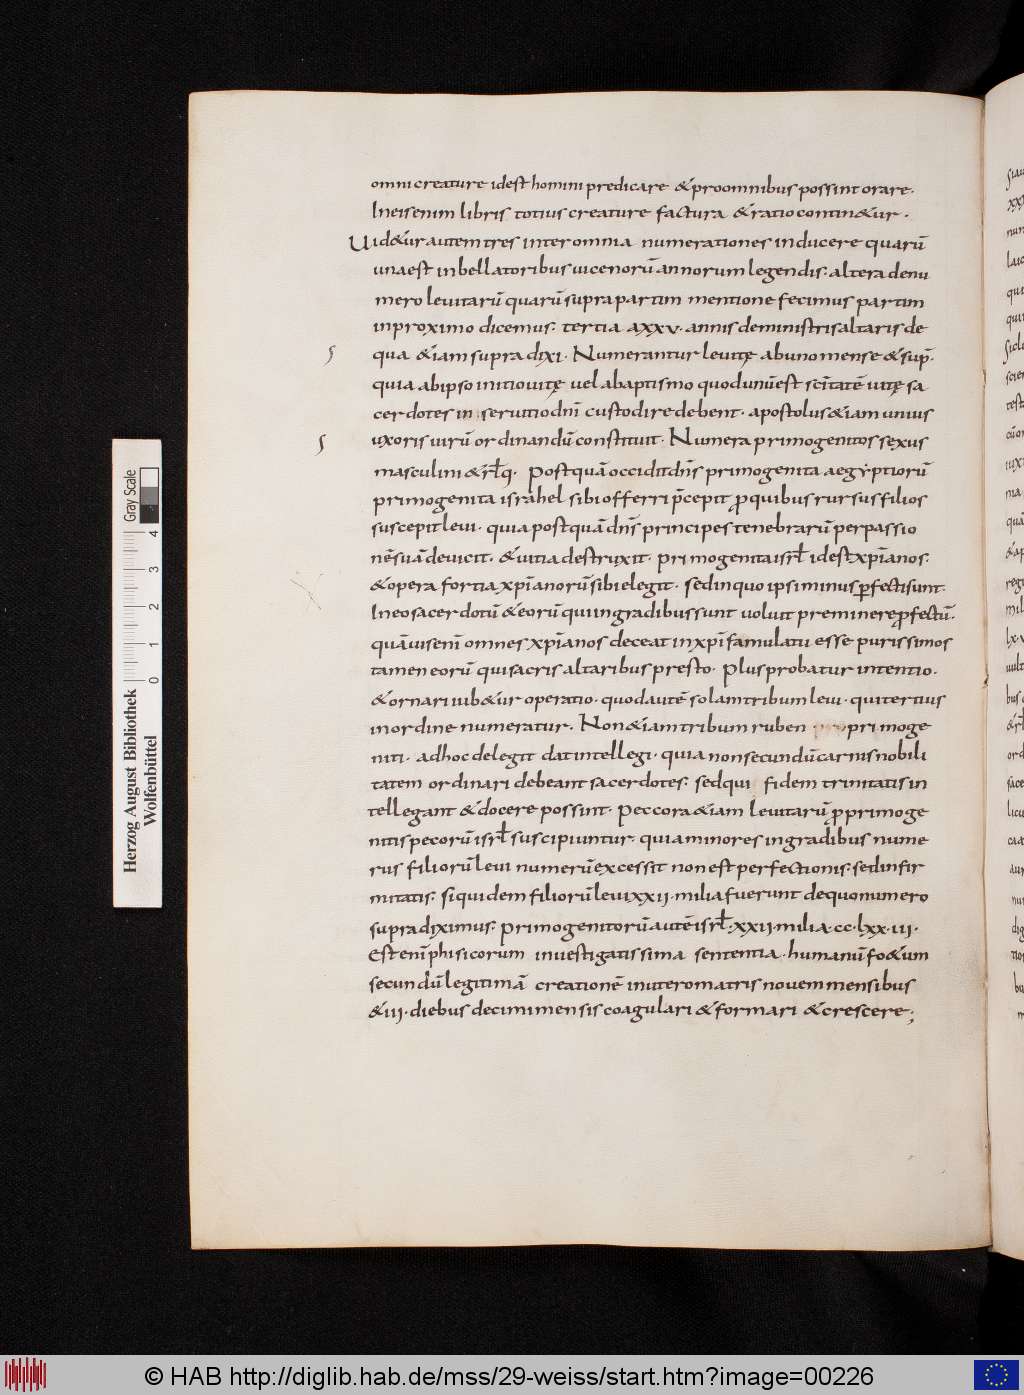 omni creature idest homini predicare & pro omnibus possint orare.
In eis enim libris totius creature factura & ratio contin&ur.
Uid&ur autem tres inter omnia numerationes inducere quarū
una est in bellatoribus vicenorū annorum legendis. altera denu
mero levitarū quarū supra partim mentione fecimus partim
in proximo dicemus. tertia a xxv. annis de ministris altaris de
qua &iam supra dixi. Numerantur levitę ab uno mense & sup̄.
quia ab ipso initio vitę vel a baptismo quod unū est sc̄itatē vitę sa
cerdotes in servitio dn̄i custodire debent. apostolus &iam unius
uxoris virū ordinandū constituit. Numera primogenitos sexus
masculini & rl̄q. Postquā occidit dn̄s primogenita aegyptiorū
primogenita israhel sibi offerri p̄cepit p̱ quibus rursus filios
suscepit levi. quia postquā dn̄s principes tenebrarū per passio
nē suā devicit. & vitia destruxit. primogenita isrl̄ idest xp̄ianos.
& opera fortia xp̄ianorū sibi elegit. sed in quo ipsi minus ꝑfecti sunt.
In eo sacerdotū & eorū qui in gradibus sunt voluit preminere ꝓfectū.
quāvis enī omnes xp̄ianos deceat in xp̄i famulatu esse purissimos
tamen eorū qui sacris altaribus presto. plus probatur intentio.
& ornari iub&ur operatio. quod autē solam tribum levi. qui tertius
in ordine numeratur. Non &iam tribum ruben pro primoge
niti. ad hoc delegit dat intellegi. quia non secundū carnis nobili
tatem ordinari debeant sacerdotes. sed qui fidem trinitatis in
tellegant & docere possint. Peccora &iam levitarū ꝓ primoge
nitis pecorū isrl̄ suscipiuntur. quia minores in gradibus nume
rus filiorū levi numerū excessit non est perfectionis. sed infir
mitatis. siquidem filiorū levi xxii. milia fuerunt de quo numero
supra diximus. primogenitorū autē isrl̄. xxii. milia. cc. lxx. iii.
Est enī phisicorum investigatissima sententia. humanū fo&um
secundū legitimā creationē in utero matris novem mensibus
& iii. diebus decimi mensis coagulari & formari & crescere;
Herzog August Bibliothek
Wolfenbüttel
0 1 2 3 4
Gray Scale
© HAB http://diglib.hab.de/mss/29-weiss/start.htm?image=00226